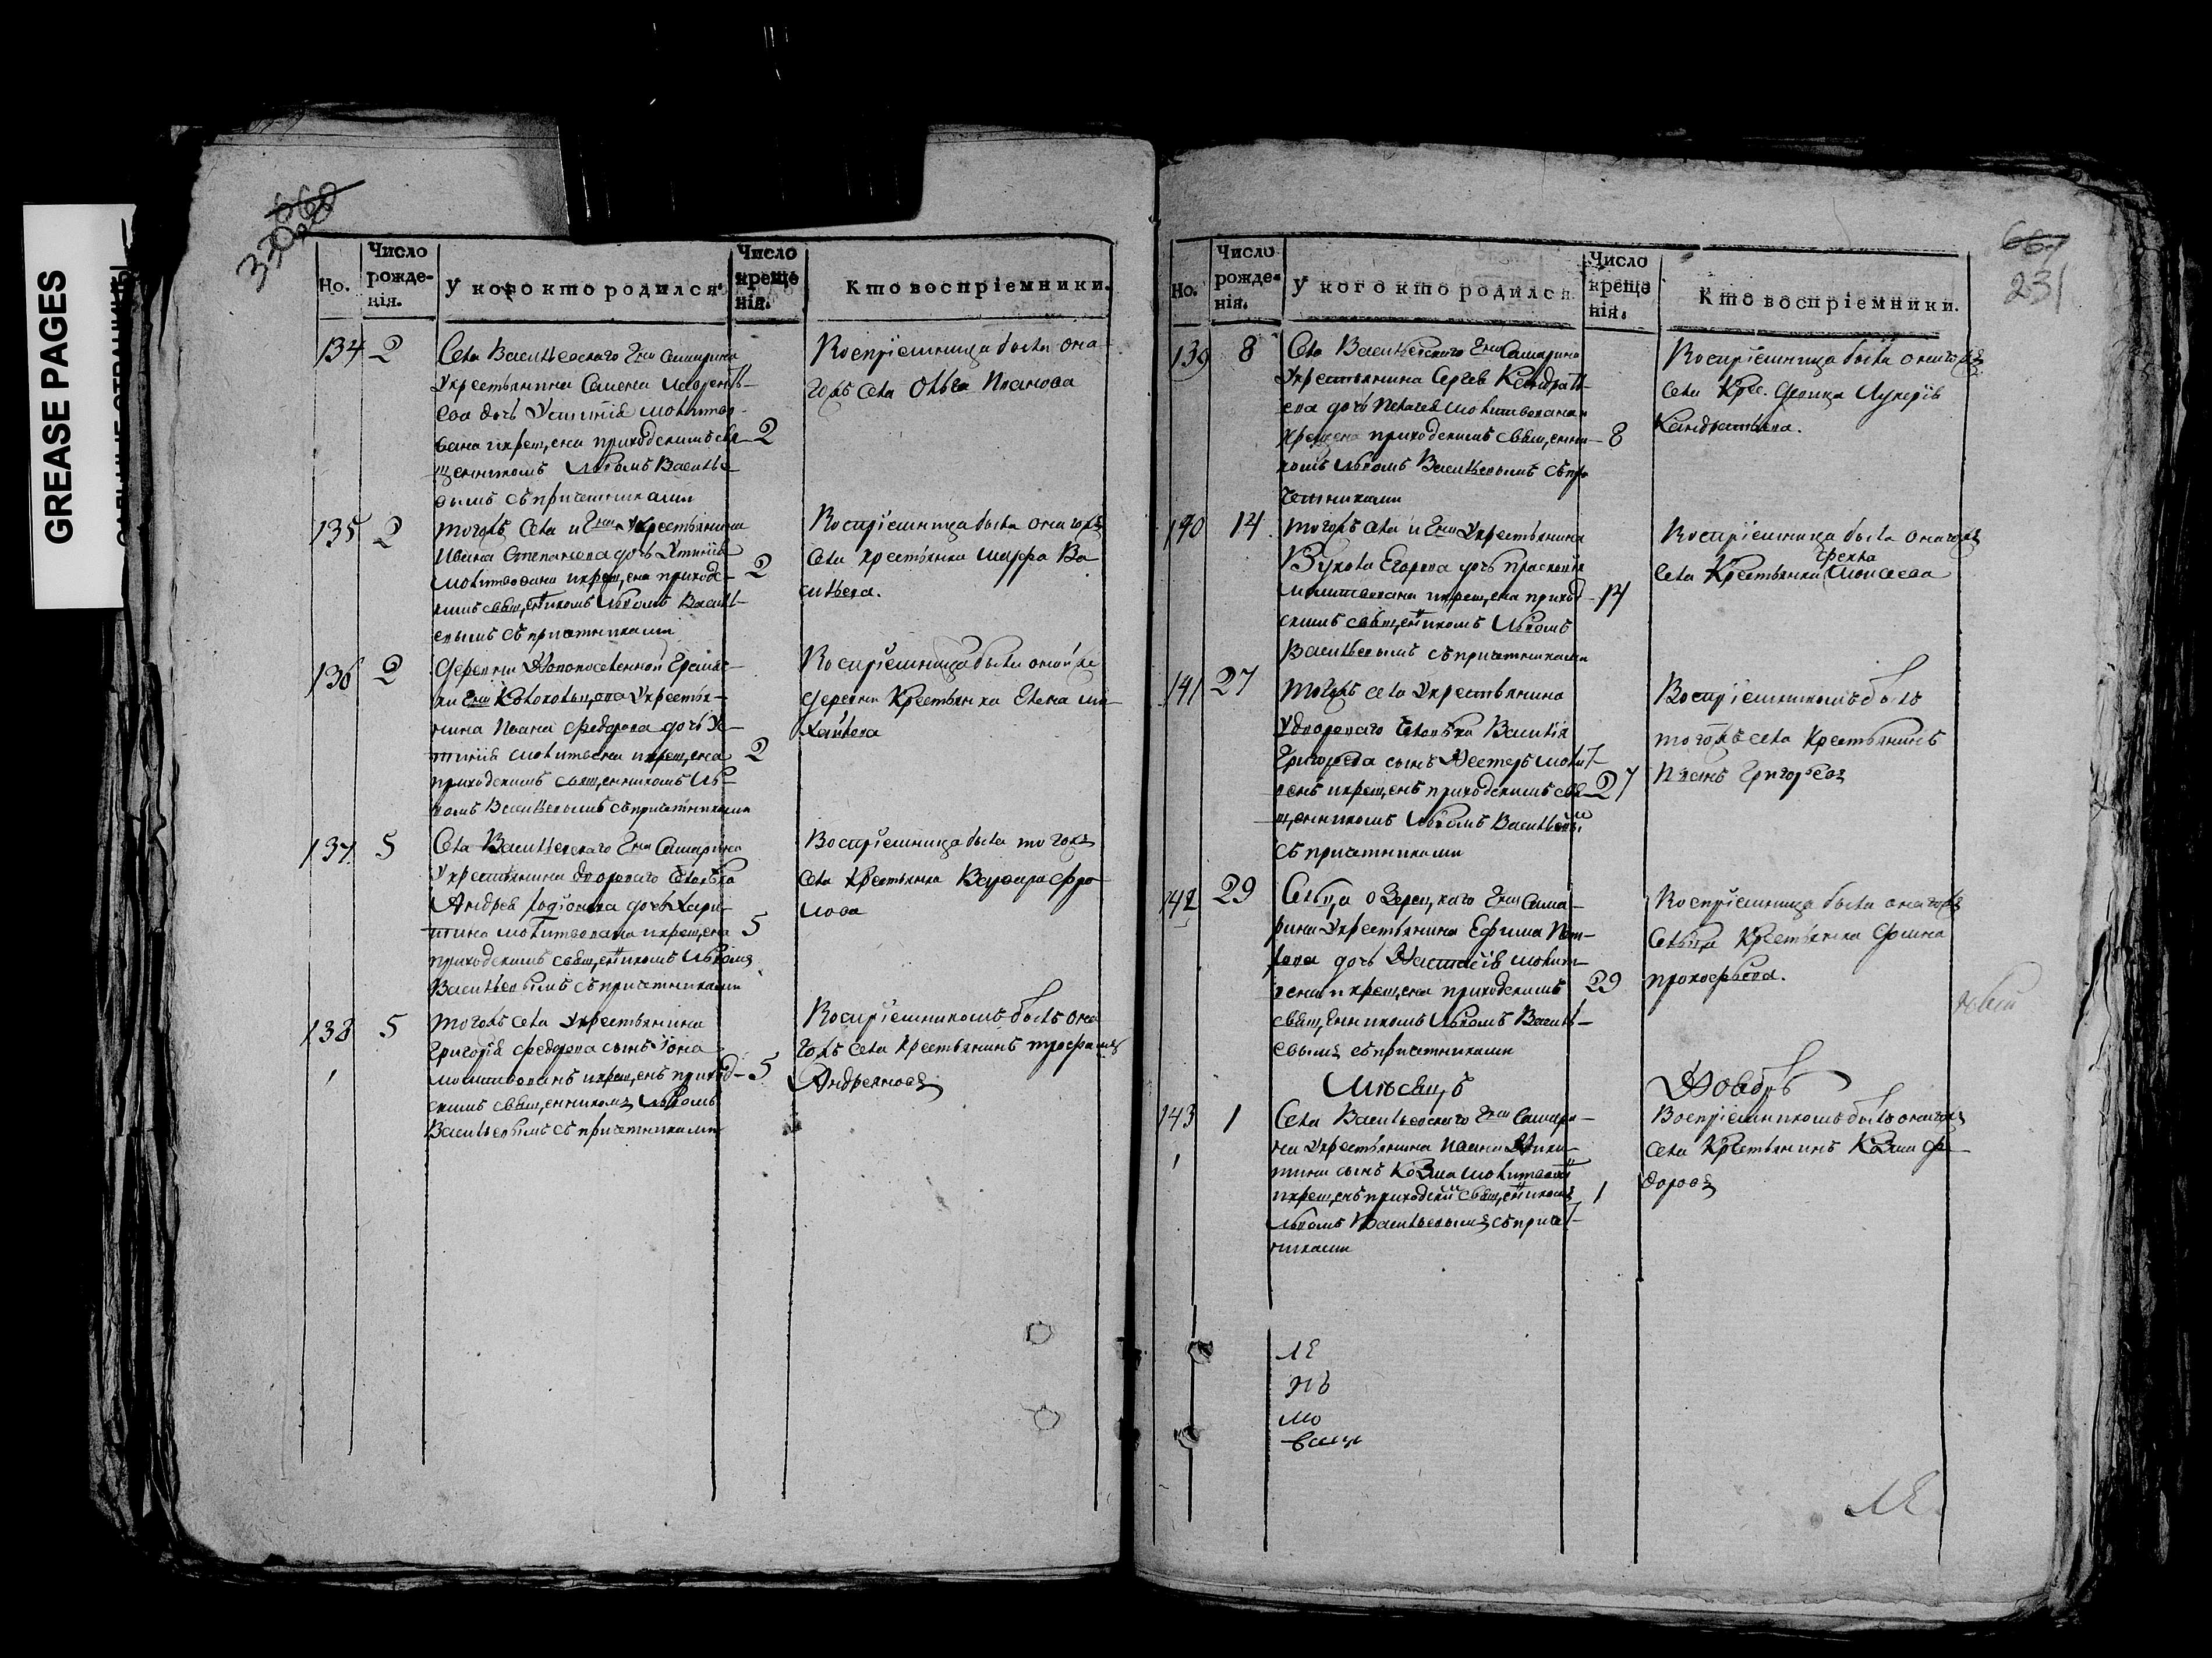 GREASE PAGES
Но.
Число
рожде-
нія.
У кого кто родился.
Число
креще
нія.
Кто воспріемники.
134 2
Села Васильевскаго Гна Самарина
укрестьянина Семена Лаврентъ-
ева дочь Устинія молитво-
вана икрещена приходскимъ свя- 2
щенникомъ Львомъ Василье-
вымъ съпричетниками
Воспріемница была она-
гожъ села Ольга Иванова
135 2
тогожъ села и Гна укрестьянина
Ивана Степанова дочь Устинія
молитвована икрещена приход- 2
скимъ священникомъ Львомъ Василь-
евымъ съ причетниками
Воспріемница была онагожъ
села крестьянка Марфа Ва
сильева.
136 2
деревни Новопоселенной
укрестья-
нина Ивана Федорова дочь Ус-
тинія молитвована икрещена 2
приходскимъ священникомъ Ль-
вомъ Васильевымъ съпричетниками
Воспріемница была оной же
деревни Крестьянка Елена Ми-
хайлова
137 5
Села Васильевскаго Гна Самарина
укрестьянина дворового человѣка
Андрея Родіонова дочь Хари-
тина молитвована икрещена 5
приходскимъ священникомъ Львомъ
Васильевымъ съпричетниками
Воспріемница была тогожъ
села Крестьянка Варвара Фро-
лова
138 5
тогожъ села укрестьянина
Григорія Федорова сынъ Іона
молитвованъ икрещенъ приход- 5
скимъ священникомъ Львомъ
Васильевымъ съ причетниками
Воспріемникомъ былъ она
гожъ села Крестьянинъ Трофимъ
Андреяновъ
231
Но.
Число
рожде-
нія.
У кого кто родился
Число
креще
нія.
Кто воспріемники.
139 8
Села Васильевскаго Гна Самарина
укрестьянина Сергея Кондрать-
ева дочь Пелагея молитвована и
крещена приходскимъ священни- 8
комъ Львомъ Васильевымъ съпри
четниками
Воспріемница была онагожъ
села Крес. девица Лукерія
Кандратьева.
140 14
тогожъ села и Гна укрестьянина
Вукола Егорова дочь Прасковія
молитвована икрещена приход- 14
скимъ священникомъ Львомъ
Васильевымъ съпричетниками
Воспріемница была онагожъ
села Крестьянка Фекла Моисеева
141 27
тогожъ села укрестьянина
удворового человѣка Василія
Григорева сынъ Нестеръ молит-
венъ икрещенъ приходскимъ свя- 27
щенникомъ Львомъ Васильевымъ
съ причетниками
Воспріемникомъ былъ
тогожъ села Крестьянинъ
Иванъ Григорьевъ
142 29
Сельца Озерецкаго Гна Сама-
рина укрестьянина Ефима Пет-
рова дочь Настасія молит-
вена икрещена приходскимъ 29
священникомъ Львомъ Василь-
евымъ съпричетниками
Воспріемница была онагожъ
сельца Крестьянка Домна
Прокофьева.
Мѣсяцъ Ноябрь
143 1
Села Васильевскаго Гна Самари-
на укрестьянина Ивана Ники-
тина сынъ Козма молитвованъ
икрещенъ приходскимъ священникомъ 1
Львомъ Васильевымъ съприче-
тниками
Воспріемникомъ былъ онагожъ
села Крестьянинъ Козма Фе-
доровъ